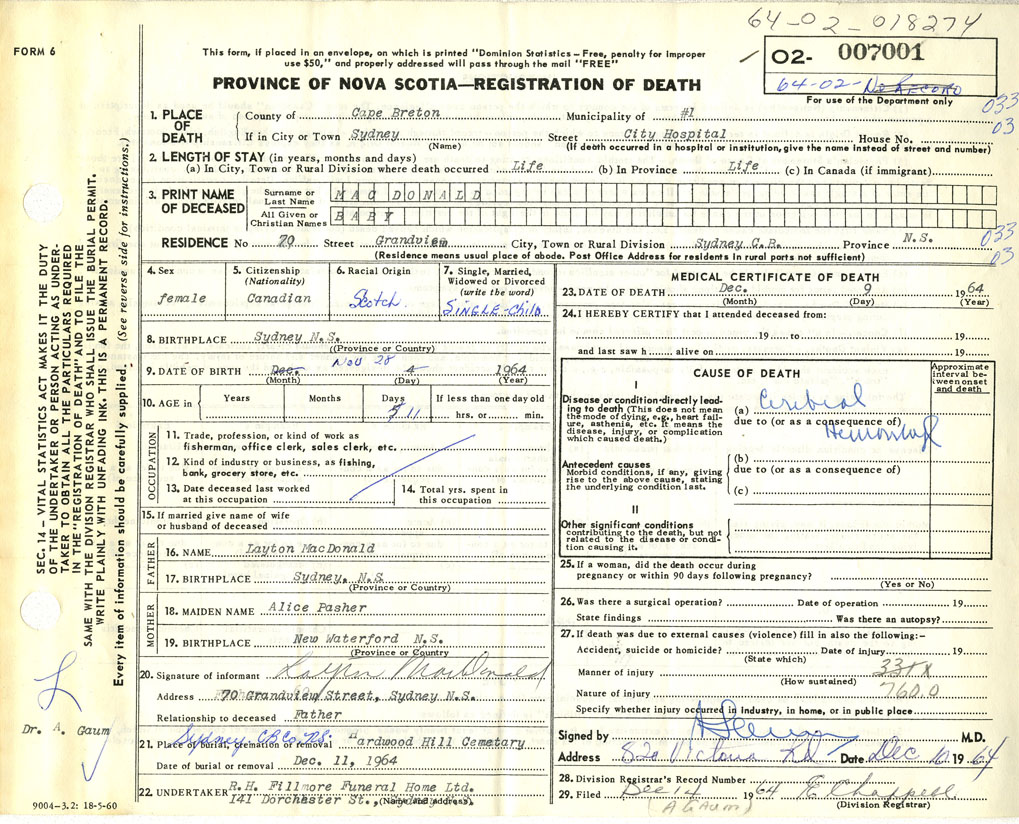 64-02-018274
FORM 6
This form, if placed in an envelope, on which is printed "Dominion Statistics - Free, penalty for improper
use $50," and properly addressed will pass through the mail "FREE"
O2- 007001
64-02- No Record
For use of the Department only
PROVINCE OF NOVA SCOTIA—REGISTRATION OF DEATH
033
03
1. PLACE OF DEATH
County of Cape Breton Municipality of #1
If in City or Town Sydney Street City Hospital House No.
(Name) (If death occurred in a hospital or institution, give the name instead of street and number)
2. LENGTH OF STAY (in years, months and days)
(a) In City, Town or Rural Division where death occurred Life (b) In Province Life (c) In Canada (if immigrant)
3. PRINT NAME OF DECEASED
Surname or Last Name MAC DONALD
All Given or Christian Names BABY
RESIDENCE No 70 Street Grandview City, Town or Rural Division Sydney C.B. Province N.S.
033
03
(Residence means usual place of abode. Post Office Address for residents in rural parts not sufficient)
4. Sex
female
5. Citizenship
(Nationality)
Canadian
6. Racial Origin
Scotch
7. Single, Married,
Widowed or Divorced
(write the word)
SINGLE-Child
8. BIRTHPLACE Sydney N.S.
(Province or Country)
Nov 28
9. DATE OF BIRTH Dec. 4 1964
(Month) (Day) (Year)
10. AGE in
Years Months Days If less than one day old
5 11 hrs. or min.
OCCUPATION
11. Trade, profession, or kind of work as
fisherman, office clerk, sales clerk, etc.
12. Kind of industry or business, as fishing,
bank, grocery store, etc.
13. Date deceased last worked
at this occupation
14. Total yrs. spent in
this occupation
15. If married give name of wife
or husband of deceased
FATHER
16. NAME Layton MacDonald
17. BIRTHPLACE Sydney, N.S
(Province or Country)
MOTHER
18. MAIDEN NAME Alice Pasher
19. BIRTHPLACE New Waterford N.S.
(Province or Country)
20. Signature of informant Layton MacDonald
Address 70 Grandview Street, Sydney N.S.
Relationship to deceased Father
Sydney C.B. Co. N.S.
21. Place of burial, cremation or removal Hardwood Hill Cemetary
Date of burial or removal Dec. 11, 1964
22. UNDERTAKER R.H. Fillmore Funeral Home Ltd.
141 Dorchester St.,
(Name and address)
MEDICAL CERTIFICATE OF DEATH
23. DATE OF DEATH Dec. 9 1964
(Month) (Day) (Year)
24. I HEREBY CERTIFY that I attended deceased from:
19 to 19
and last saw h alive on 19
CAUSE OF DEATH
Approximate
interval be-
tween onset
and death
I
Disease or condition directly lead-
ing to death (This does not mean
the mode of dying, e.g., heart fail-
ure, asthenia, etc. It means the
disease, injury, or complication
which caused death.)
(a) Cerebral
due to (or as a consequence of)
Hemorrhage
Antecedent causes
Morbid conditions, if any, giving
rise to the above cause, stating
the underlying condition last.
(b)
due to (or as a consequence of)
(c)
II
Other significant conditions
contributing to the death, but not
related to the disease or condi-
tion causing it.
25. If a woman, did the death occur during
pregnancy or within 90 days following pregnancy?
(Yes or No)
26. Was there a surgical operation? Date of operation 19
State findings Was there an autopsy?
27. If death was due to external causes (violence) fill in also the following:-
Accident, suicide or homicide? Date of injury 19
(State which)
Manner of injury
(How sustained)
Nature of injury 760.0
Specify whether injury occurred in industry, in home, or in public place
Signed by M.D.
Address 820 Victoria Rd Date Dec 10 1964
28. Division Registrar's Record Number
29. Filed Dec 14 1964 E Chappell
(A Gaum) (Division Registrar)
SEC. 14 - VITAL STATISTICS ACT MAKES IT THE DUTY
OF THE UNDERTAKER OR PERSON ACTING AS UNDER-
TAKER TO OBTAIN ALL THE PARTICULARS REQUIRED
IN THE "REGISTRATION OF DEATH" AND TO FILE THE
SAME WITH THE DIVISION REGISTRAR WHO SHALL ISSUE THE BURIAL PERMIT.
WRITE PLAINLY WITH UNFADING INK. THIS IS A PERMANENT RECORD.
Every item of information should be carefully supplied. (See reverse side for instructions.)
Dr. A. Gaum
9004-3.2: 18-5-60